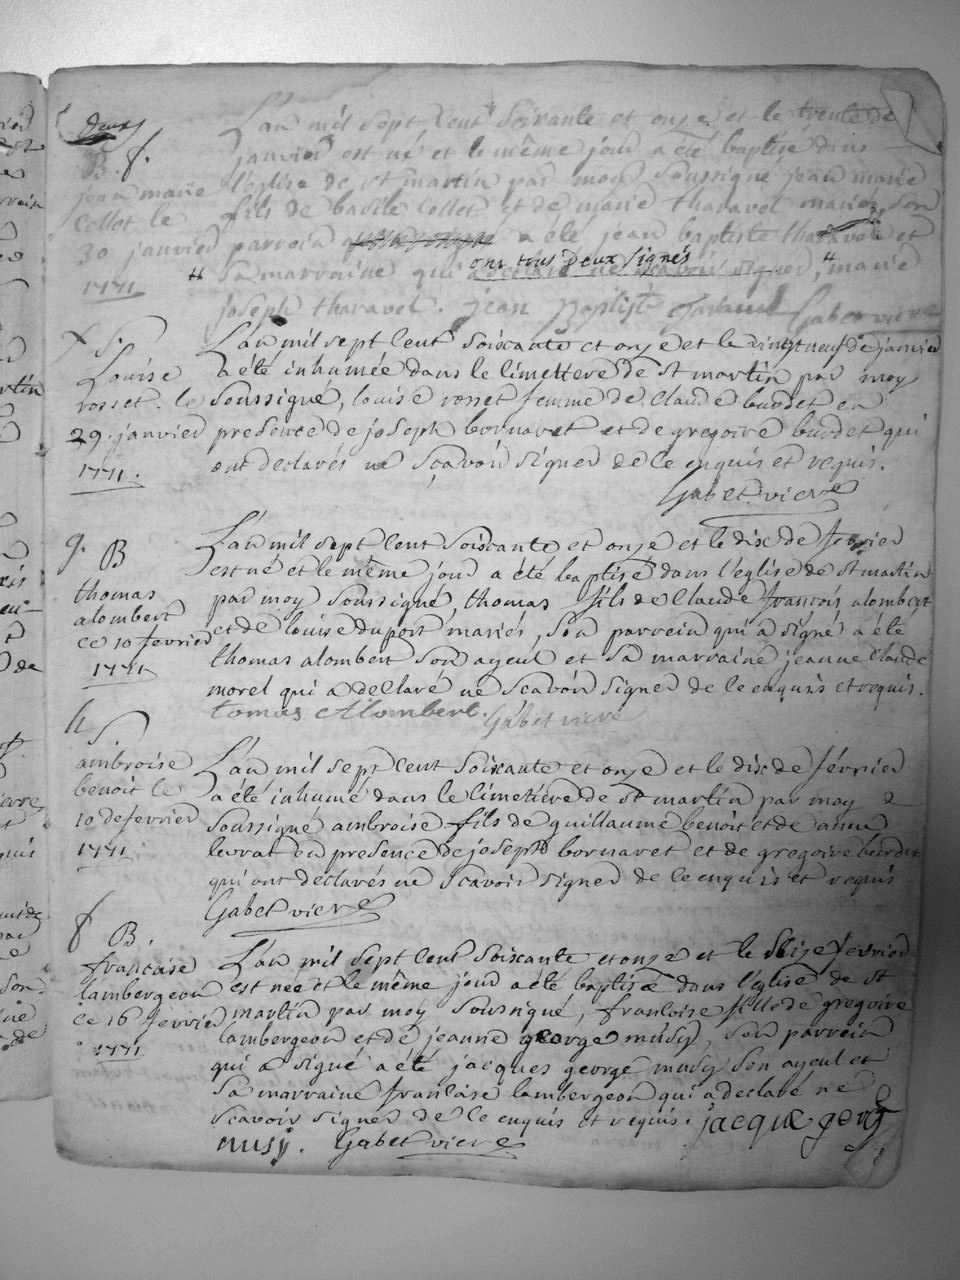 deux
B. f.
jean marie
Collet le
30 janvier
1771
L'an mil sept Cent Soixante et onze et le trente de
janvier est né et le même jour a été baptisé dans
l'eglise de st martin par moy Soussigné jean marie
fils de basile Collet et de marie tharavel mariés, Son
parrain a été jean baptiste tharavel et
Sa marraine qui ont tous deux signés marie
joseph tharavel. jean Baptiste tharavel Gabet vicre
S.
Louise
rosset. le
29. janvier
1771.
L'an mil sept Cent Soixante et onze et le vingt neuf de janvier
a été inhumée dans le Cimettere de st martin par moy
Soussigné, louise rosset femme de Claude burdet en
presence de joseph bornavet et de gregoire burdet qui
ont declarés ne Sçavoir Signer de Ce enquis et requis.
Gabet vicre
g. B
thomas
alombert
ce 10 fevrier
1771
L'an mil sept Cent Soixante et onze et le dix de fevrier
est né et le même jour a été baptisé dans l'église de st martin
par moy Soussigné, thomas fils de Claude françois alombert
et de louise duport mariés, Son parrein qui a signé a été
thomas alombert Son ayeul et Sa marraine jeanne Claude
morel qui a declaré ne Scavoir Signer de Ce enquis et requis.
tomas Alombert. Gabet vicre
h S.
ambroise
benoit le
10 de fevrier
1771
L'an mil sept Cent Soixante et onze et le dix de février
a été inhumé dans le Cimetiere de st martin par moy
Soussigné ambroise fils de guillaume benoit et de anne
levrat en presence de joseph bornavet et de gregoire burdet
qui ont declarés ne Scavoir Signer de Ce enquis et requis
Gabet vicre
f B.
francaise
lambergeon
ce 16 fevrier
1771
L'an mil sept Cent Soixante et onze et le Seize fevrier
est née et le même jour a été baptisée dans l'église de st
martin par moy Soussigné, francoise fille de gregoire
lambergeon et de jeanne george musy, Son parrein
qui a signé a été jacques george musy Son ayeul et
Sa marraine francaise lambergeon qui a declaré ne
Scavoir Signer de Ce enquis et requis. jacque gorg
musy. Gabet vicre